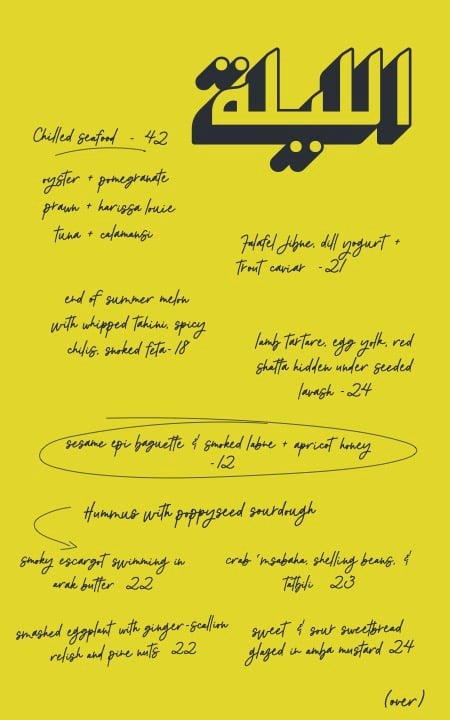 الليلة
Chilled seafood - 42
oyster + pomegranate
prawn + harissa louie
tuna + calamansi
Falafel Jibne, dill yogurt +
trout caviar - 21
end of summer melon
with whipped tahini, spicy
chilis, smoked feta - 18
lamb tartare, egg yolk, red
shatta hidden under seeded
lavash - 24
sesame epi baguette & smoked labne + apricot honey
- 12
Hummus with poppyseed sourdough
smoky escargot swimming in
arak butter 22
crab 'msabaha, shelling beans, &
tatbili 23
smashed eggplant with ginger-scallion
relish and pine nuts 22
sweet & sour sweetbread
glazed in amba mustard 24
(over)